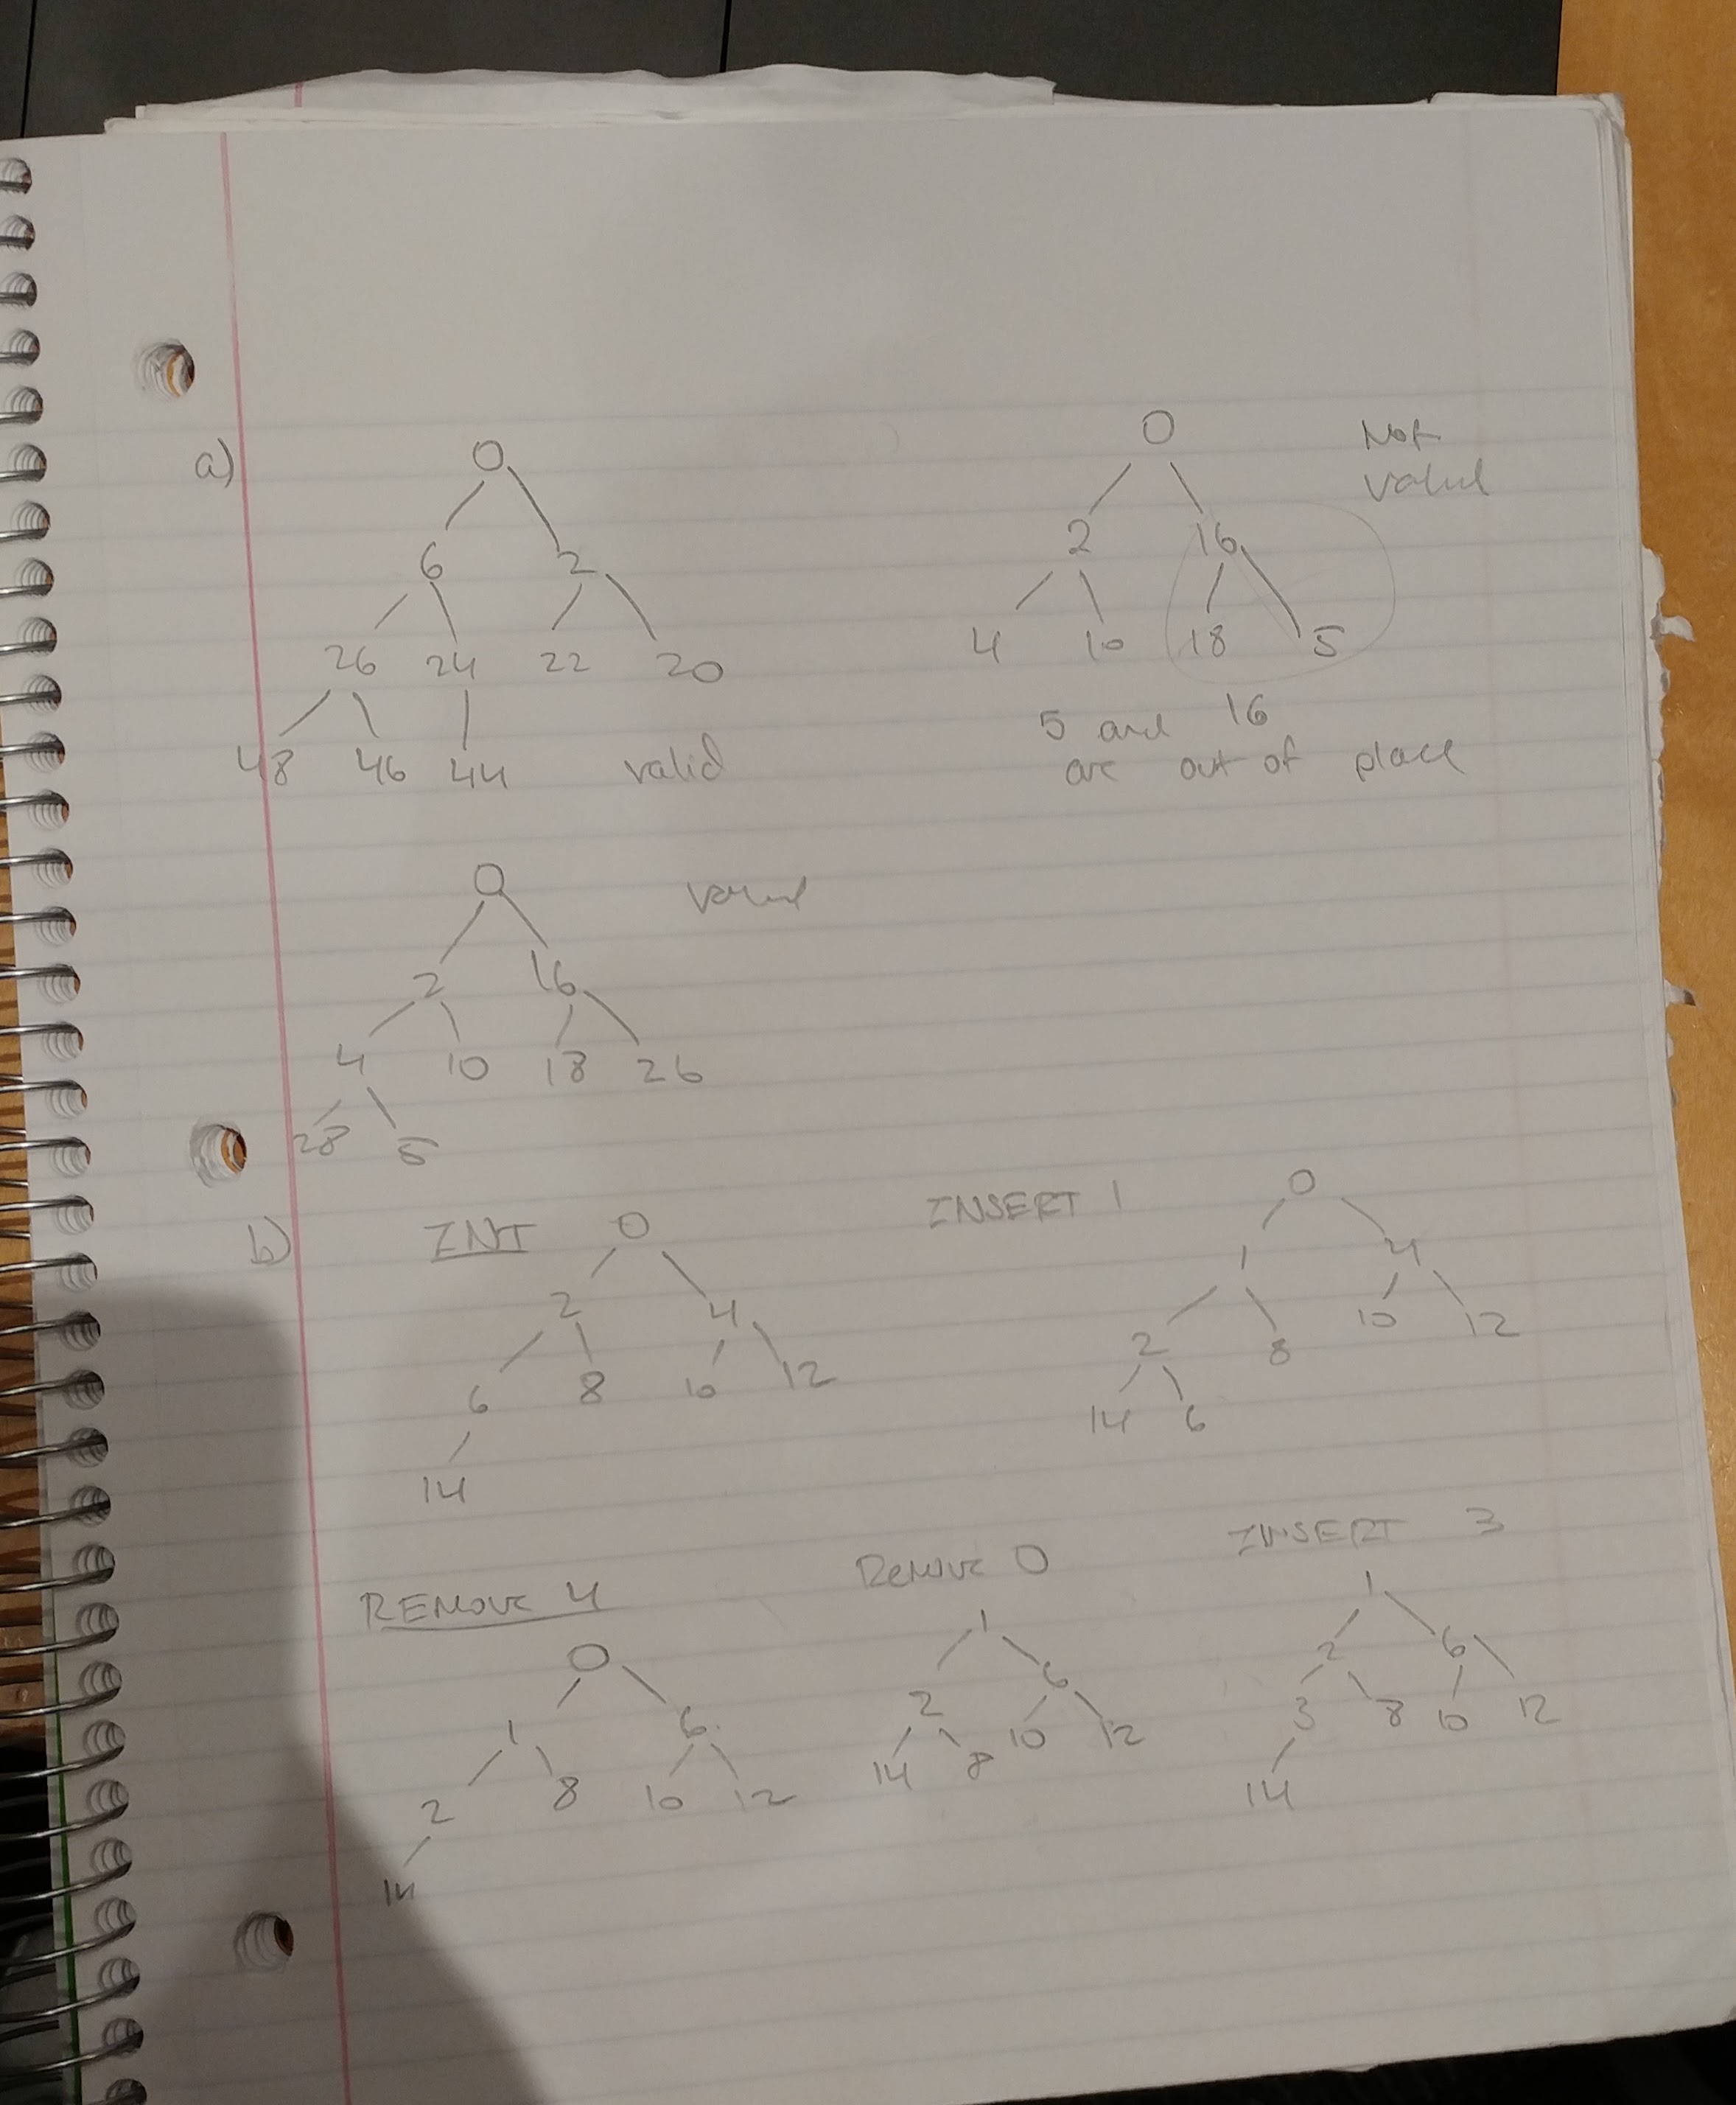 a)
0
6 2
26 24 22 20
48 46 44 valid
0 Not
valid
2 16
4 10 18 5
5 and 16
are out of place
0 valid
2 16
4 10 18 26
28 5
b) INT 0
2 4
6 8 10 12
14
INSERT 1 0
1 4
2 8 10 12
14 6
REMOVE 4
0
1 6
2 8 10 12
14
Remove 0
1
2 6
14 8 10 12
INSERT 3
1
2 6
3 8 10 12
14